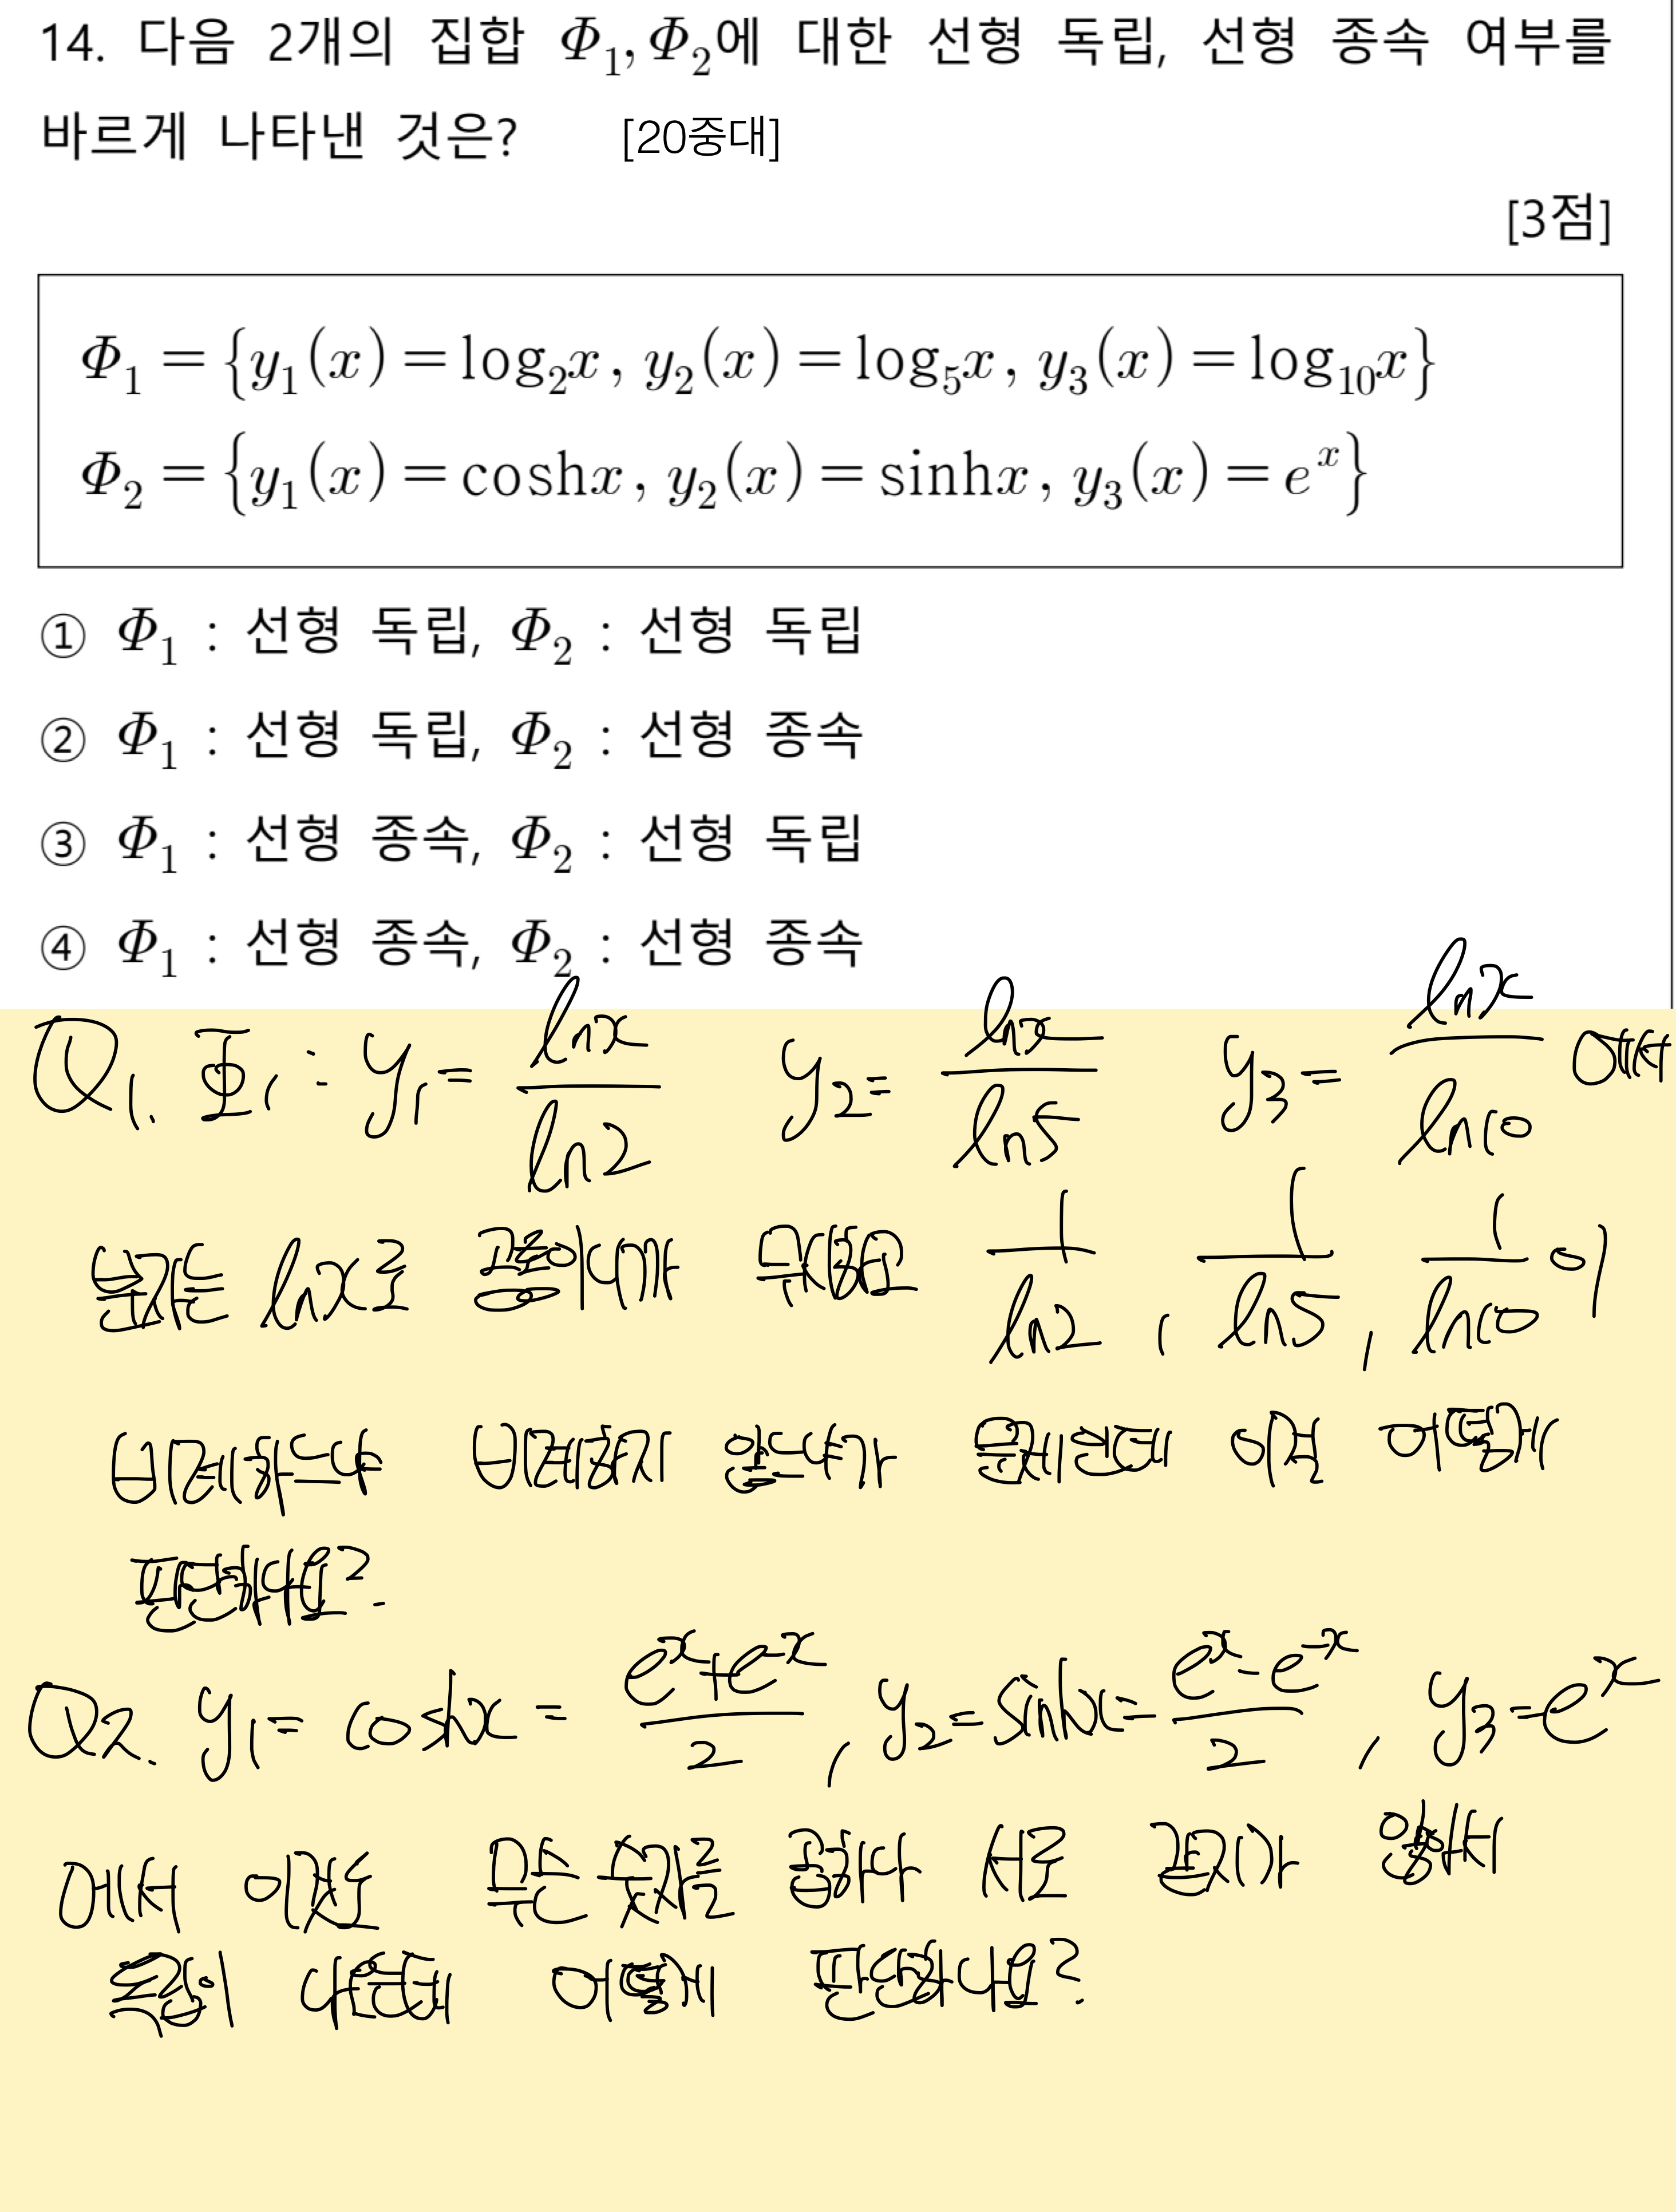 14. 다음 2개의 집합 Φ₁, Φ₂에 대한 선형 독립, 선형 종속 여부를
바르게 나타낸 것은? [20중대]
[3점]
Φ₁ = {y₁(x) = log₂x, y₂(x) = log₅x, y₃(x) = log₁₀x}
Φ₂ = {y₁(x) = coshx, y₂(x) = sinhx, y₃(x) = eˣ}
① Φ₁ : 선형 독립, Φ₂ : 선형 독립
② Φ₁ : 선형 독립, Φ₂ : 선형 종속
③ Φ₁ : 선형 종속, Φ₂ : 선형 독립
④ Φ₁ : 선형 종속, Φ₂ : 선형 종속
Q1. Φ₁ : y₁ = lnx/ln2 y₂ = lnx/ln5 y₃ = lnx/ln10 에서
분자는 lnx로 공통이니까 무시하고 1/ln2, 1/ln5, 1/ln10 이
비례하느냐 비례하지 않느냐가 문제인데 이건 어떻게
판단하나요?
Q2. y₁ = coshx = (eˣ+e⁻ˣ)/2, y₂ = sinhx = (eˣ-e⁻ˣ)/2, y₃ = eˣ
에서 이것도 무슨 숫자를 곱하나 서로 같지가 않아서
독립이 나온는데 어떻게 판단하나요?